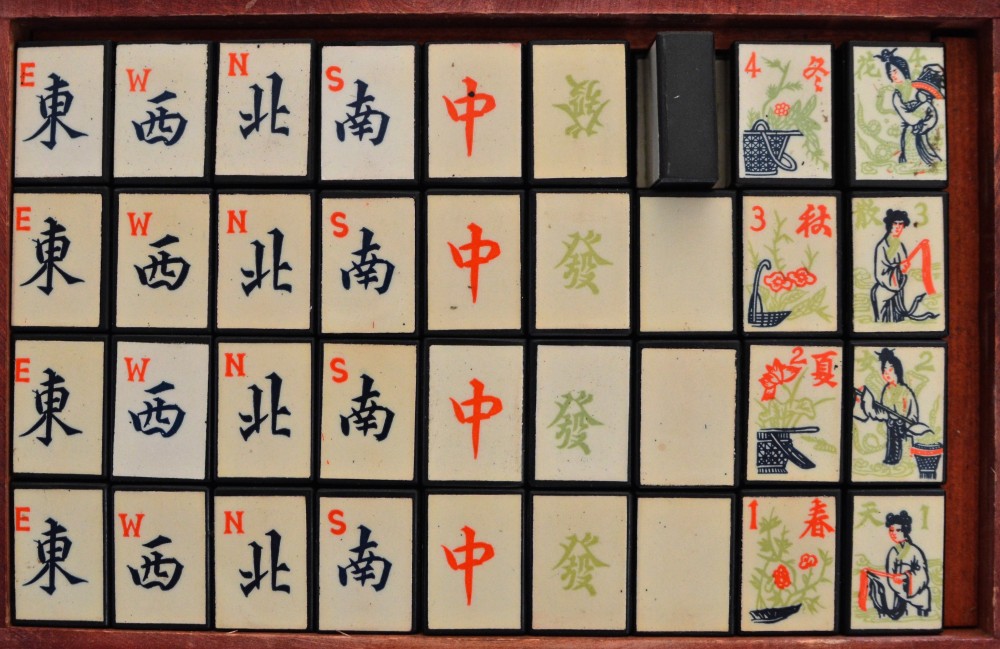 E 東 W 西 N 北 S 南 中 發 4 冬 花 4
E 東 W 西 N 北 S 南 中 發 3 秋 散 3
E 東 W 西 N 北 S 南 中 發 2 夏 女 2
E 東 W 西 N 北 S 南 中 發 1 春 天 1